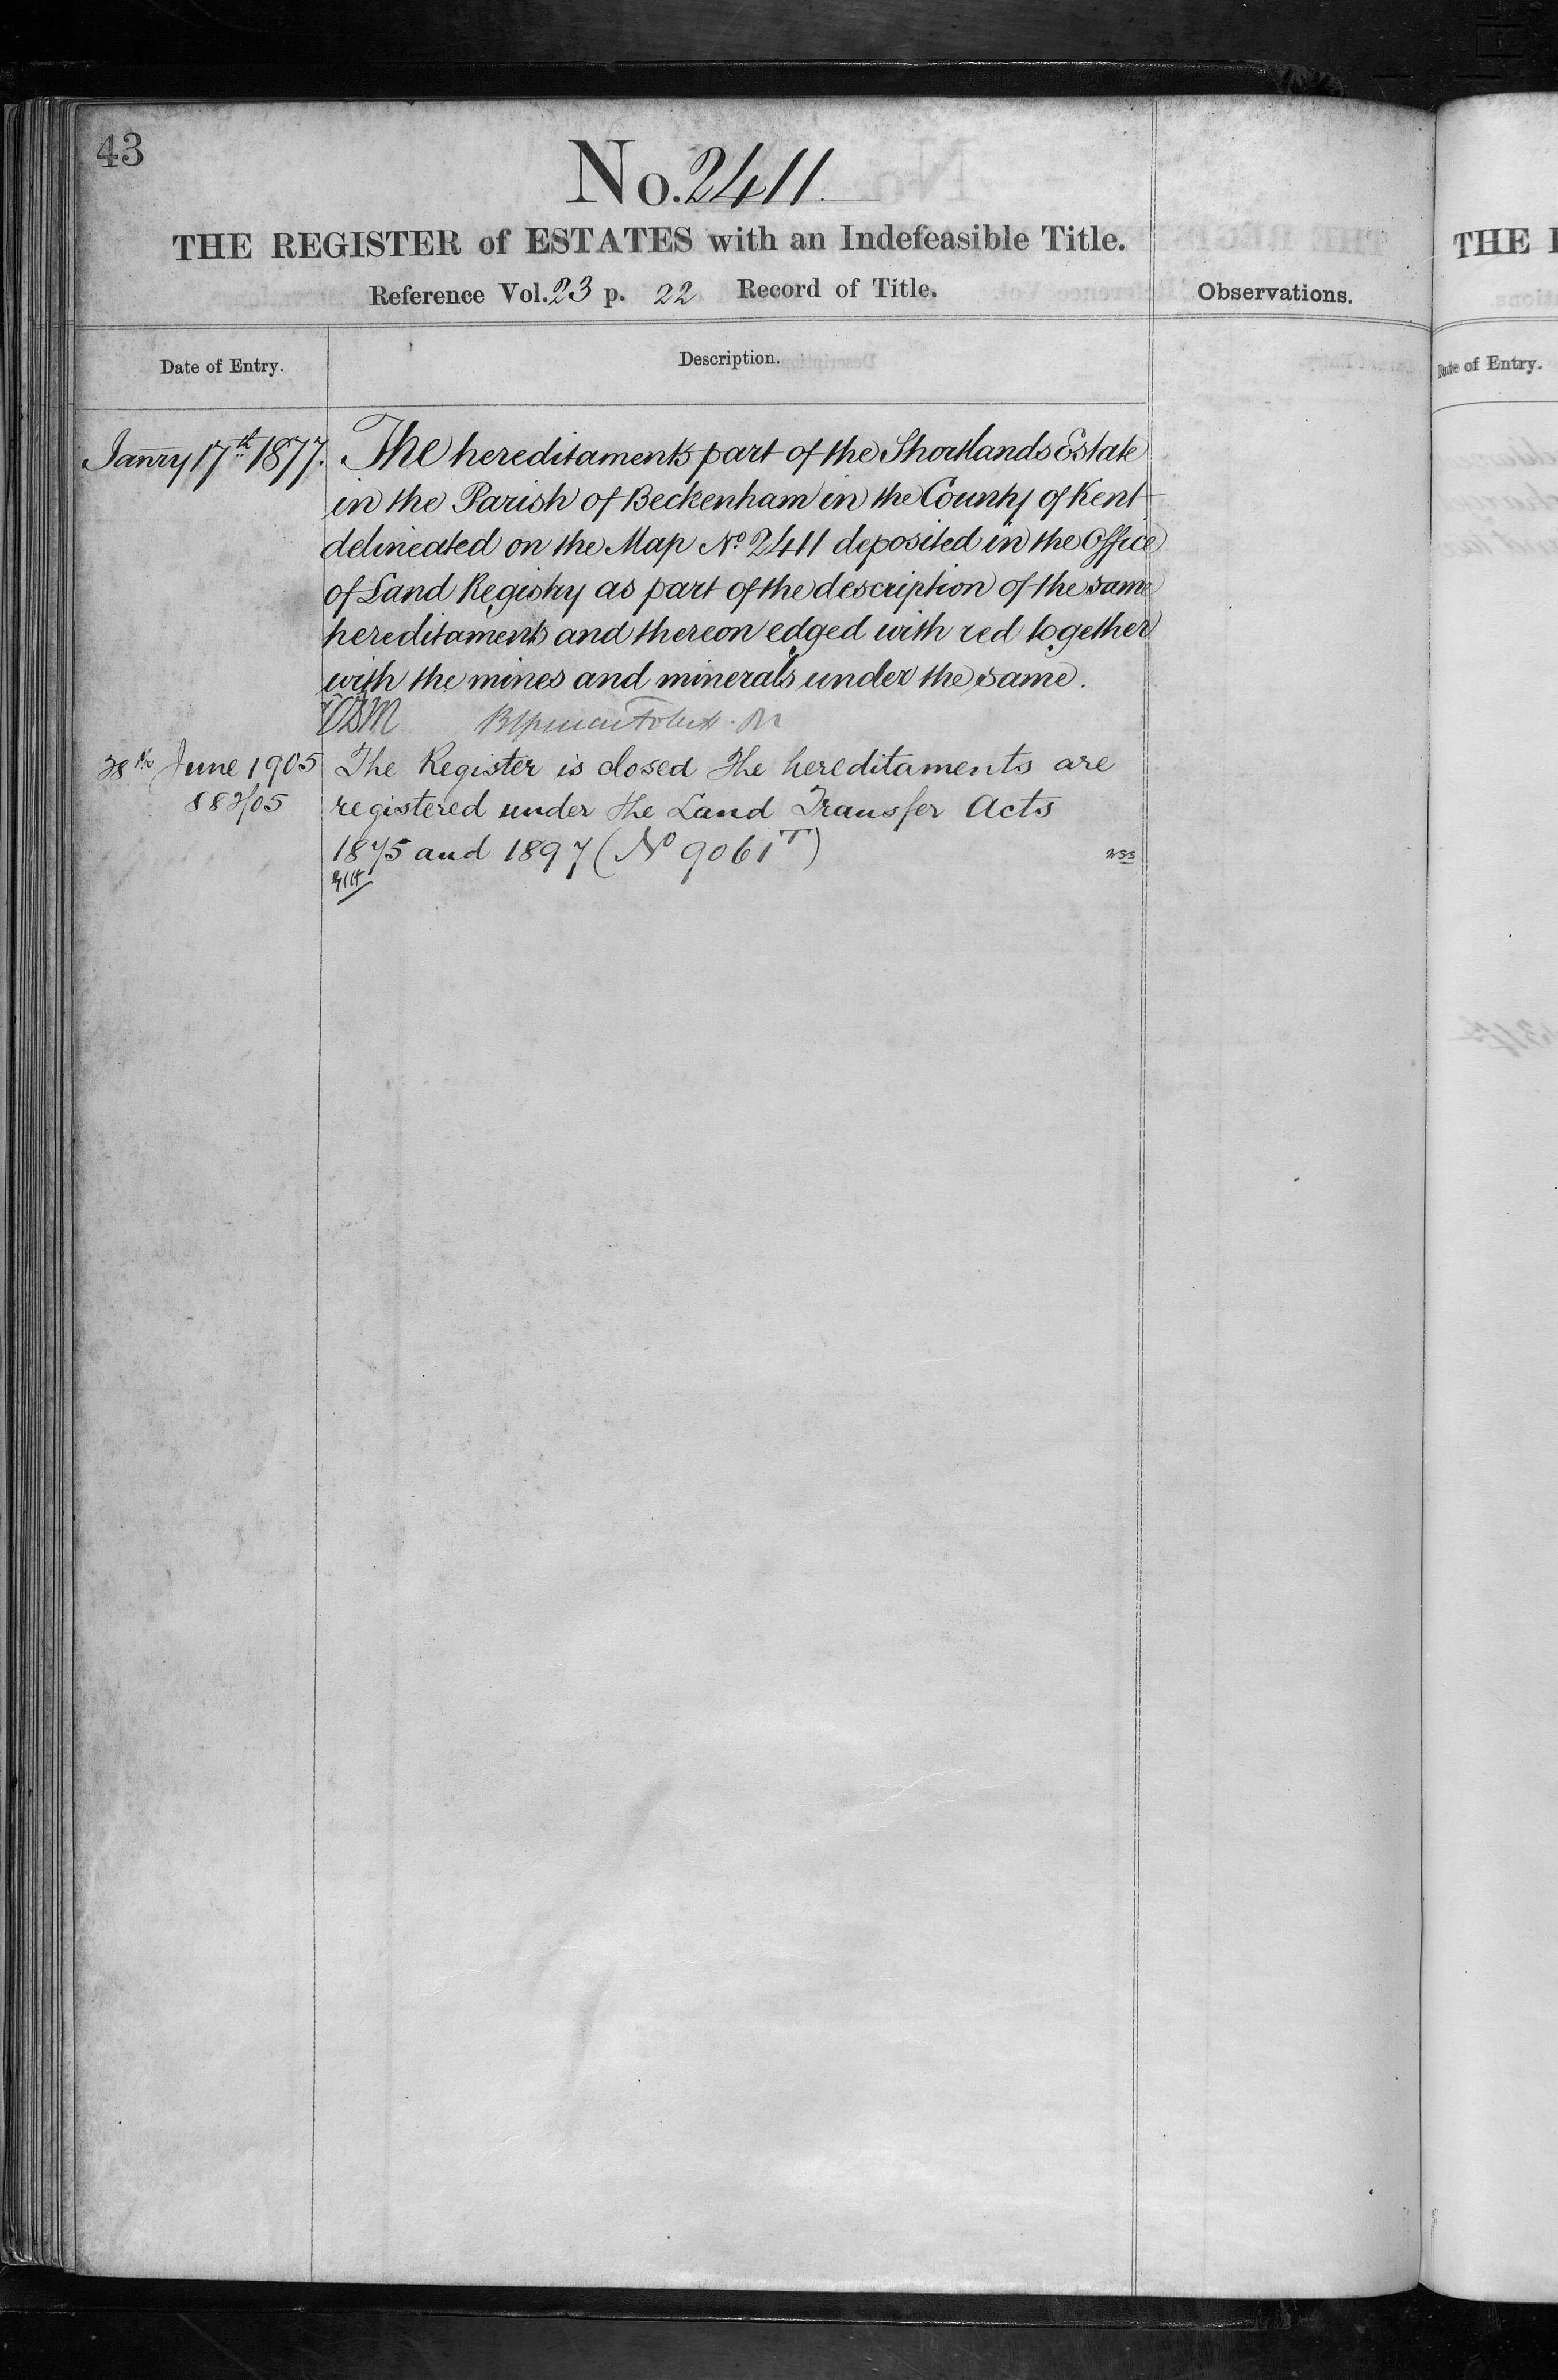 43
No. 2411.
THE REGISTER of ESTATES with an Indefeasible Title.
Reference Vol. 23 p. 22 Record of Title.
Observations.
Date of Entry.
Description.
Janry 17th 1877.
The hereditaments part of the Shortlands Estate
in the Parish of Beckenham in the County of Kent
delineated on the Map No. 2411 deposited in the Office
of Land Registry as part of the description of the same
hereditaments and thereon edged with red together
with the mines and minerals under the same.
28th June 1905
882/05
The Register is closed The hereditaments are
registered under the Land Transfer Acts
1875 and 1897 (No 9061T)
THE
Date of Entry.